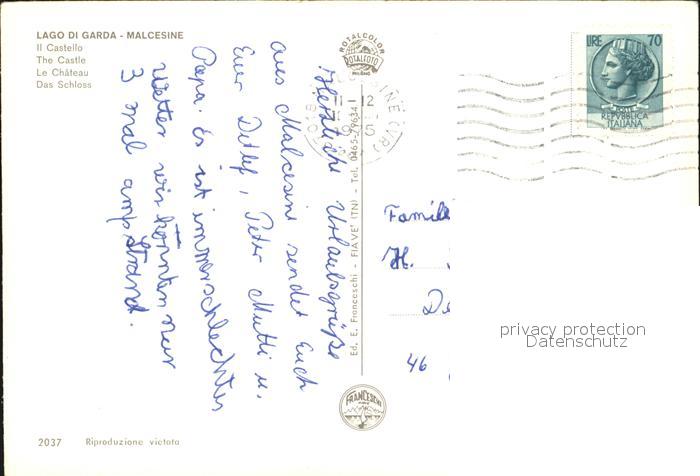 LAGO DI GARDA - MALCESINE
Il Castello
The Castle
Le Château
Das Schloss
ROTALCOLOR
ROTALFOTO
MILANO
LIRE 70
POSTE
REPVBBLICA
ITALIANA
11-12
Herzliche Urlaubsgrüße
aus Malcesine sendet Euch
Euer Detlef, Peter Mutti u.
Papa. Es ist immer schlechtes
Wetter wir konnten nur
3 mal am Strand.
Ed. E. Franceschi - FIAVE' (TN) - Tel. 0465-79634
Famil
H.
De
46
privacy protection
Datenschutz
FRANCESCHI
2037 Riproduzione vietata